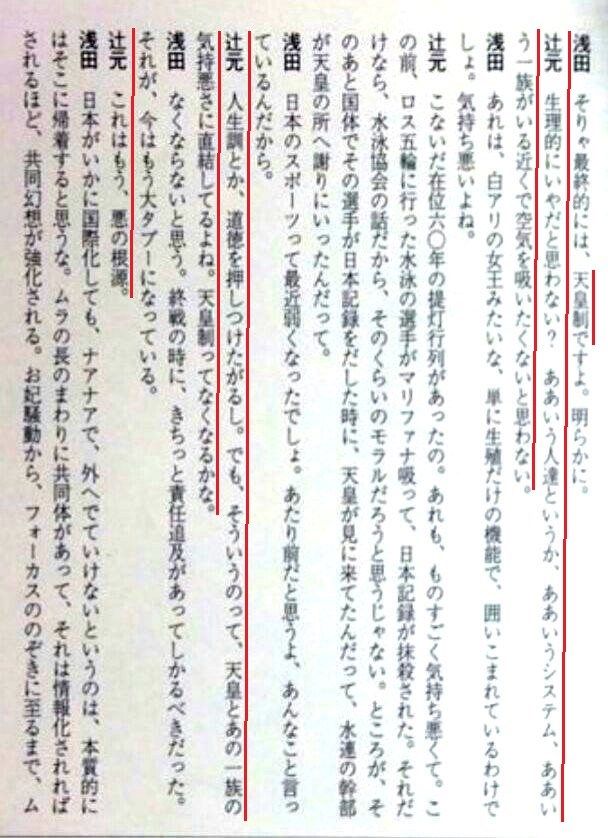 浅田　そりゃ最終的には、天皇制ですよ。明らかに。
辻元　生理的にいやだと思わない？　ああいう人達というか、ああいうシステム、ああい
う一族がいる近くで空気を吸いたくないと思わない。
浅田　あれは、白アリの女王みたいな、単に生殖だけの機能で、囲いこまれているわけで
しょ。気持ち悪いよね。
辻元　こないだ在位六〇年の提灯行列があったの。あれも、ものすごく気持ち悪くて。こ
の前、ロス五輪に行った水泳の選手がマリファナ吸って、日本記録が抹殺された。それだ
けなら、水泳協会の話だから、そのくらいのモラルだろうと思うじゃない。ところが、そ
のあと国体でその選手が日本記録をだした時に、天皇が見に来てたんだって、水連の幹部
が天皇の所へ謝りにいったんだって。
浅田　日本のスポーツって最近弱くなったでしょ。あたり前だと思うよ、あんなこと言っ
ているんだから。
辻元　人生訓とか、道徳を押しつけたがるし。でも、そういうのって、天皇とあの一族の
気持悪さに直結してるよね。天皇制ってなくなるかな。
浅田　なくならないと思う。終戦の時に、きちっと責任追及があってしかるべきだった。
それが、今はもう大タブーになっている。
辻元　これはもう、悪の根源。
浅田　日本がいかに国際化しても、ナアナアで、外へでていけないというのは、本質的に
はそこに帰着すると思うな。ムラの長のまわりに共同体があって、それは情報化されれば
されるほど、共同幻想が強化される。お妃騒動から、フォーカスののぞきに至るまで、ム